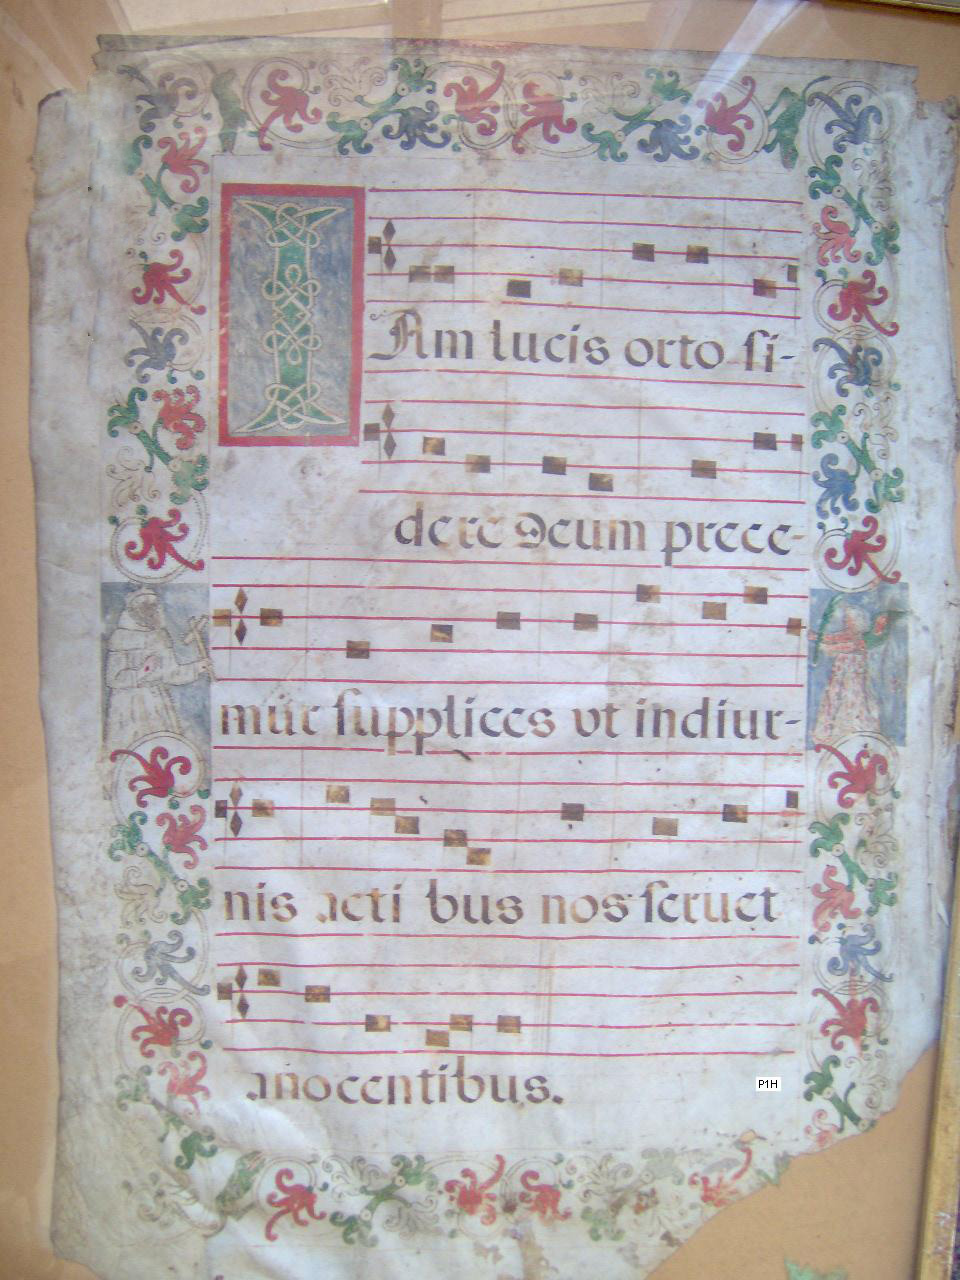 I Am lucis orto si-
dere Deum prece-
mur supplices vt in diur-
nis acti bus nos seruet
anocentibus.
P1H